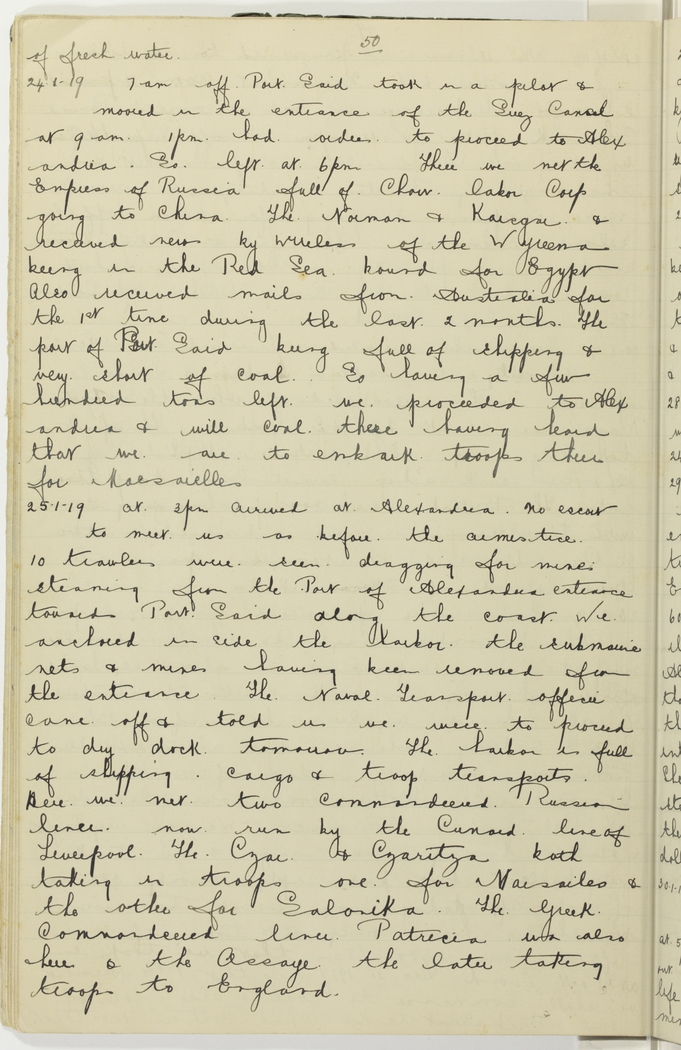 50
of fresh water.
24-1-19 7 am off Port Said took in a pilot &
moored in the entrance of the Suez Canal
at 9 am. 1pm had orders to proceed to Alex
andrea. So left at 6pm There we met the
Empress of Russia full of Chow labor Corp
going to China. The Norman & &
received news by wireless of the Wyreema
being in the Red Sea bound for Egypt
Also received mails from Australia for
the 1st time during the last 2 months. The
port of Port Said being full of shipping &
very short of coal. So having a few
hundred tons left we proceeded to Alex
andrea & will coal there having heard
that we are to embark troops there
for Marsailles
25-1-19 at 3pm arrived at Alexandrea. No escort
to meet us as before the armistice.
10 trawlers were seen dragging for mines
steaming from the Port of Alexandrea entrance
towards Port Said along the coast. We
anchored in side the harbor. The submarine
nets & mines having been removed from
the entrance. The Naval Transport officer
came off & told us we were to proceed
to dry dock tomorrow. The harbor is full
of shipping. cargo & troop transports.
Here we met two commandeered Russian
liners now run by the Cunard line of
Liverpool. The Czar & Czaritza both
taking in troops one for Marsailes &
the other for Salonika. The Greek
Commandeered liner Patricia was also
here & the Assaye the later taking
troops to England.